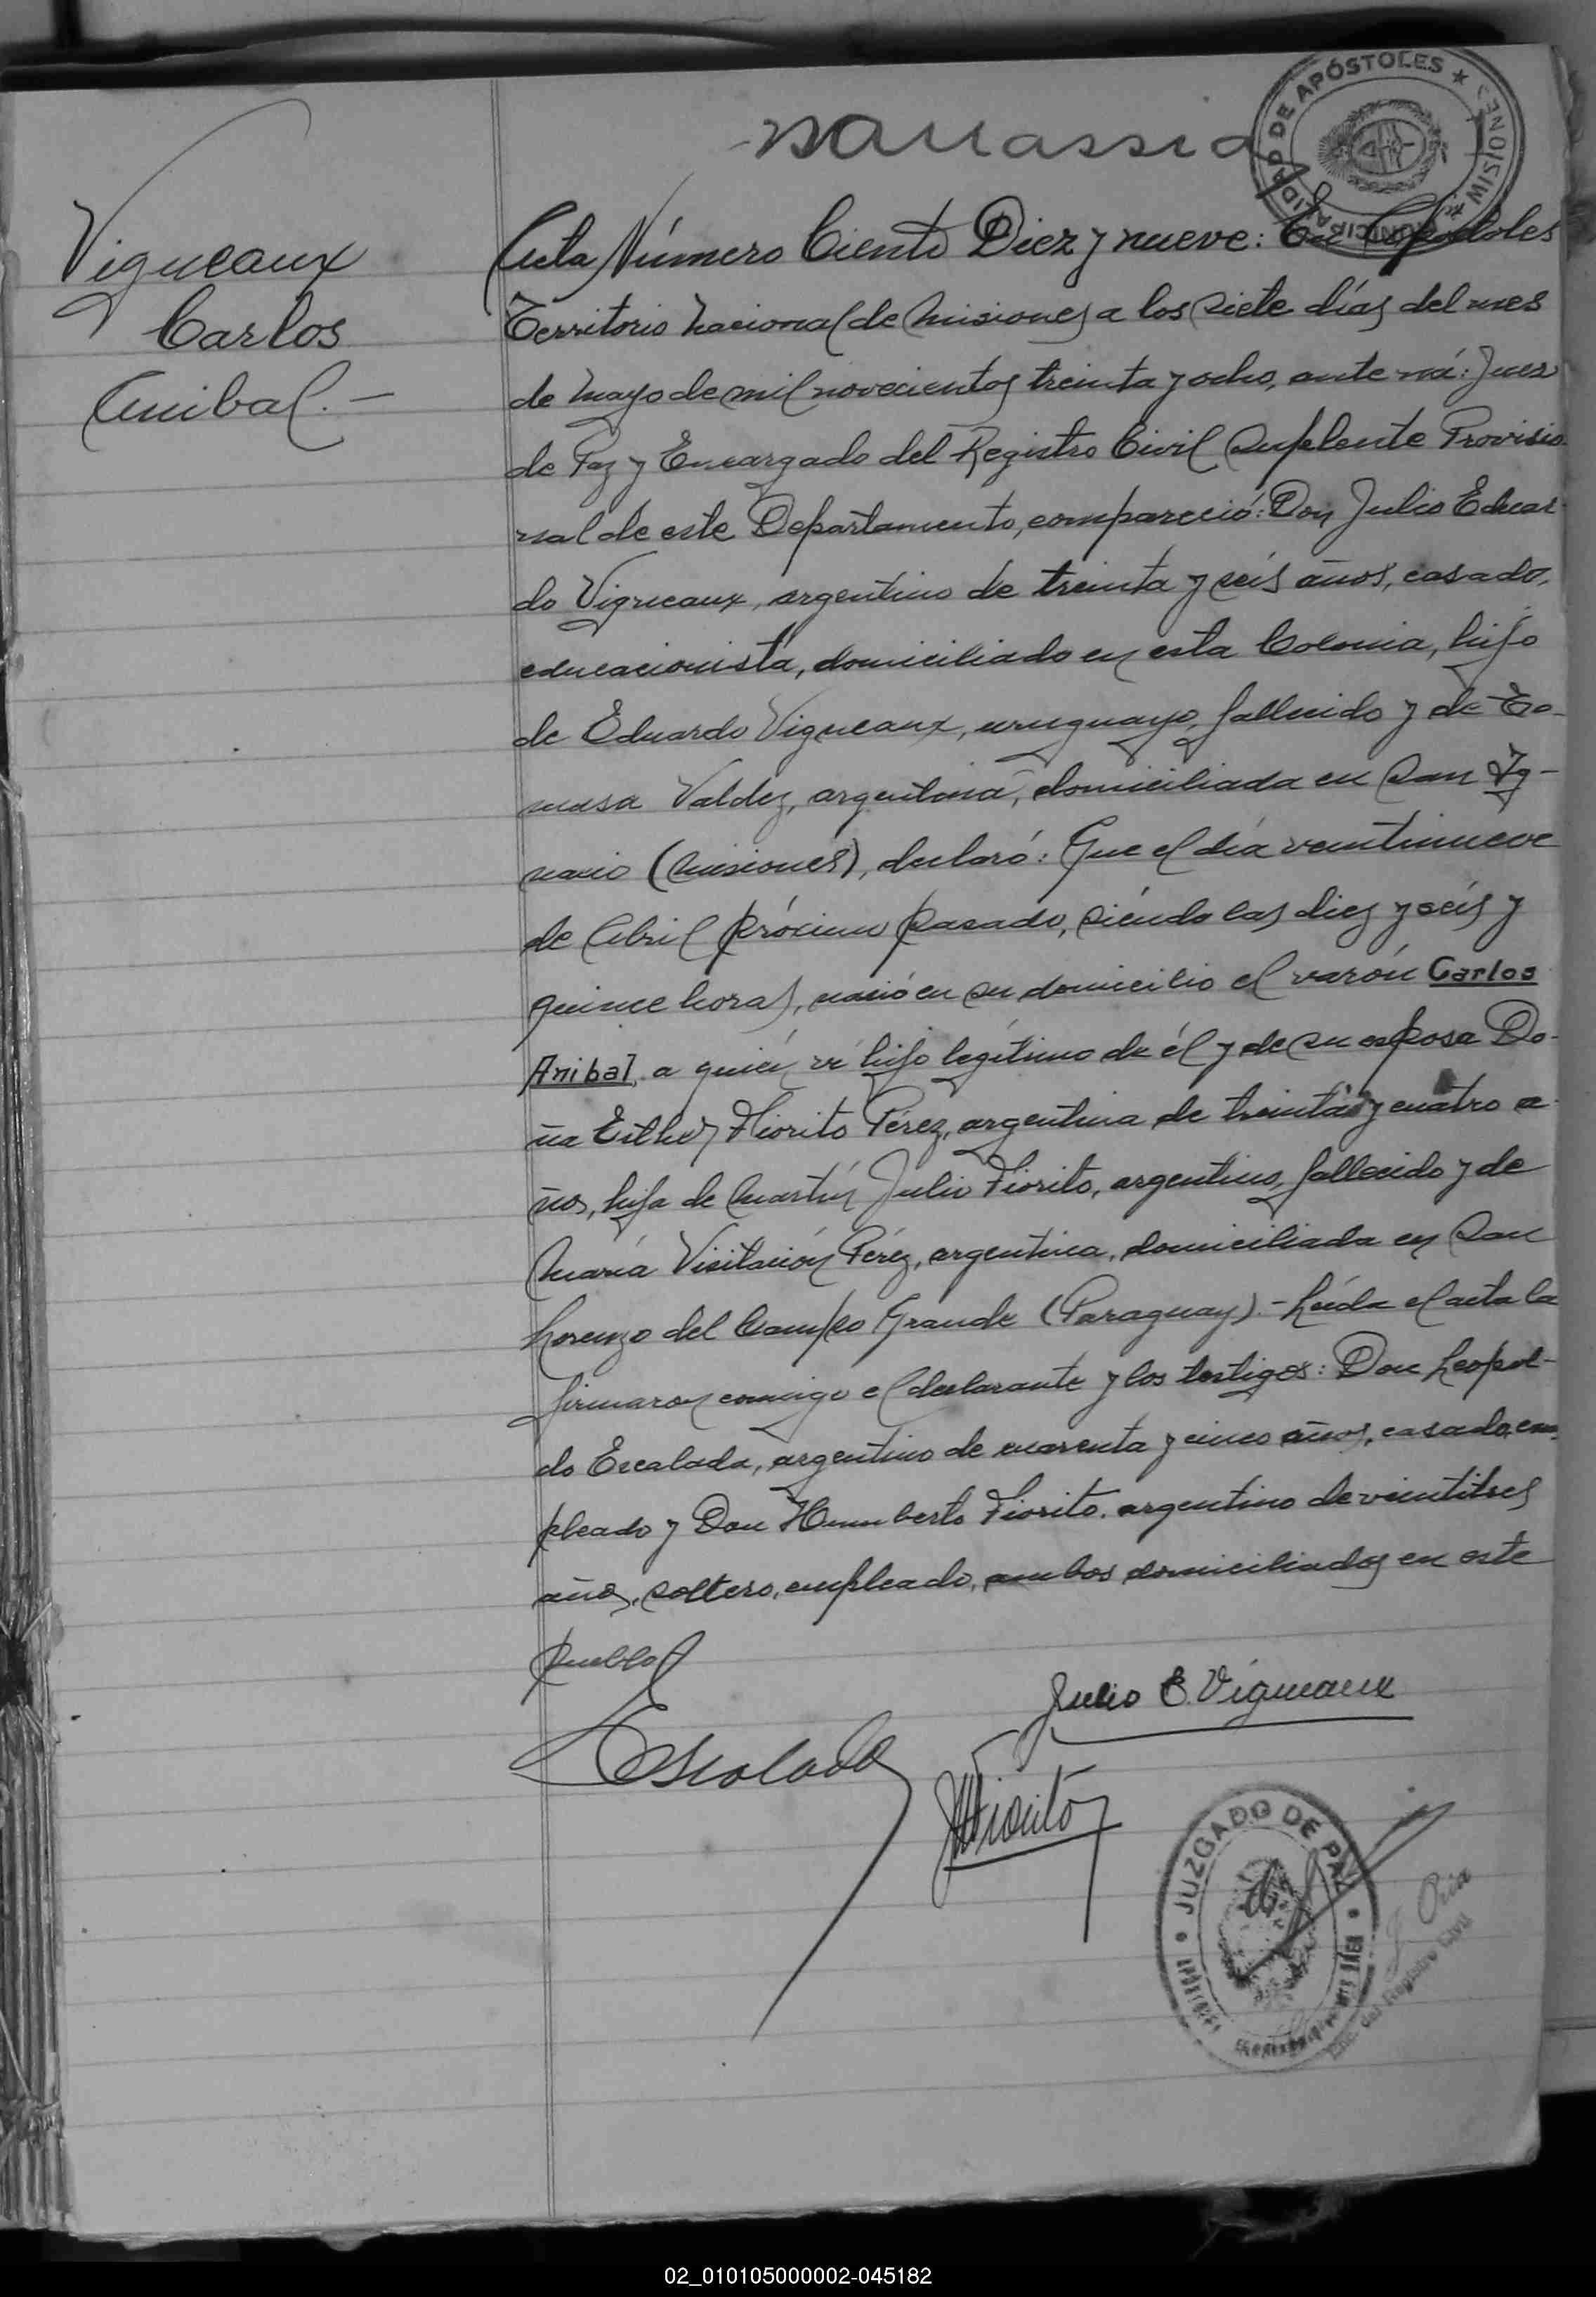 MUNICIPALIDAD DE APÓSTOLES ★ MISIONES ★
Vigneaux
Carlos
Anibal.-
Acta Número Ciento Diez y nueve: En Apóstoles
Territorio Nacional de Misiones a los siete días del mes
de Mayo de mil novecientos treinta y ocho, ante mí: Juez
de Paz y Encargado del Registro Civil Suplente Provisio-
nal de este Departamento, compareció: Don Julio Eduar-
do Vigneaux, argentino de treinta y seis años, casado,
educacionista, domiciliado en esta Colonia, hijo
de Eduardo Vigneaux, uruguayo, fallecido y de To-
masa Valdez, argentina, domiciliada en San Ig-
nacio (Misiones), declaró: Que el día veintinueve
de Abril próximo pasado, siendo las diez y seis y
quince horas, nació en su domicilio el varón Carlos
Anibal, a quien ví hijo legítimo de él y de su esposa Do-
ña Esther Fiorito Pérez, argentina de treinta y cuatro a-
ños, hija de Martín Julio Fiorito, argentino, fallecido y de
María Visitación Pérez, argentina, domiciliada en San
Lorenzo del Campo Grande (Paraguay).- Leída el acta la
firmaron conmigo el declarante y los testigos: Don Leopol-
do Escalada, argentino de cuarenta y cinco años, casado, em-
pleado y Don Humberto Fiorito, argentino de veintitres
años, soltero, empleado, ambos domiciliados en este
pueblo
Julio E. Vigneaux
Escalada
HFiorito
JUZGADO DE PAZ
J. Oria
Enc. del Registro Civil
02_010105000002-045182